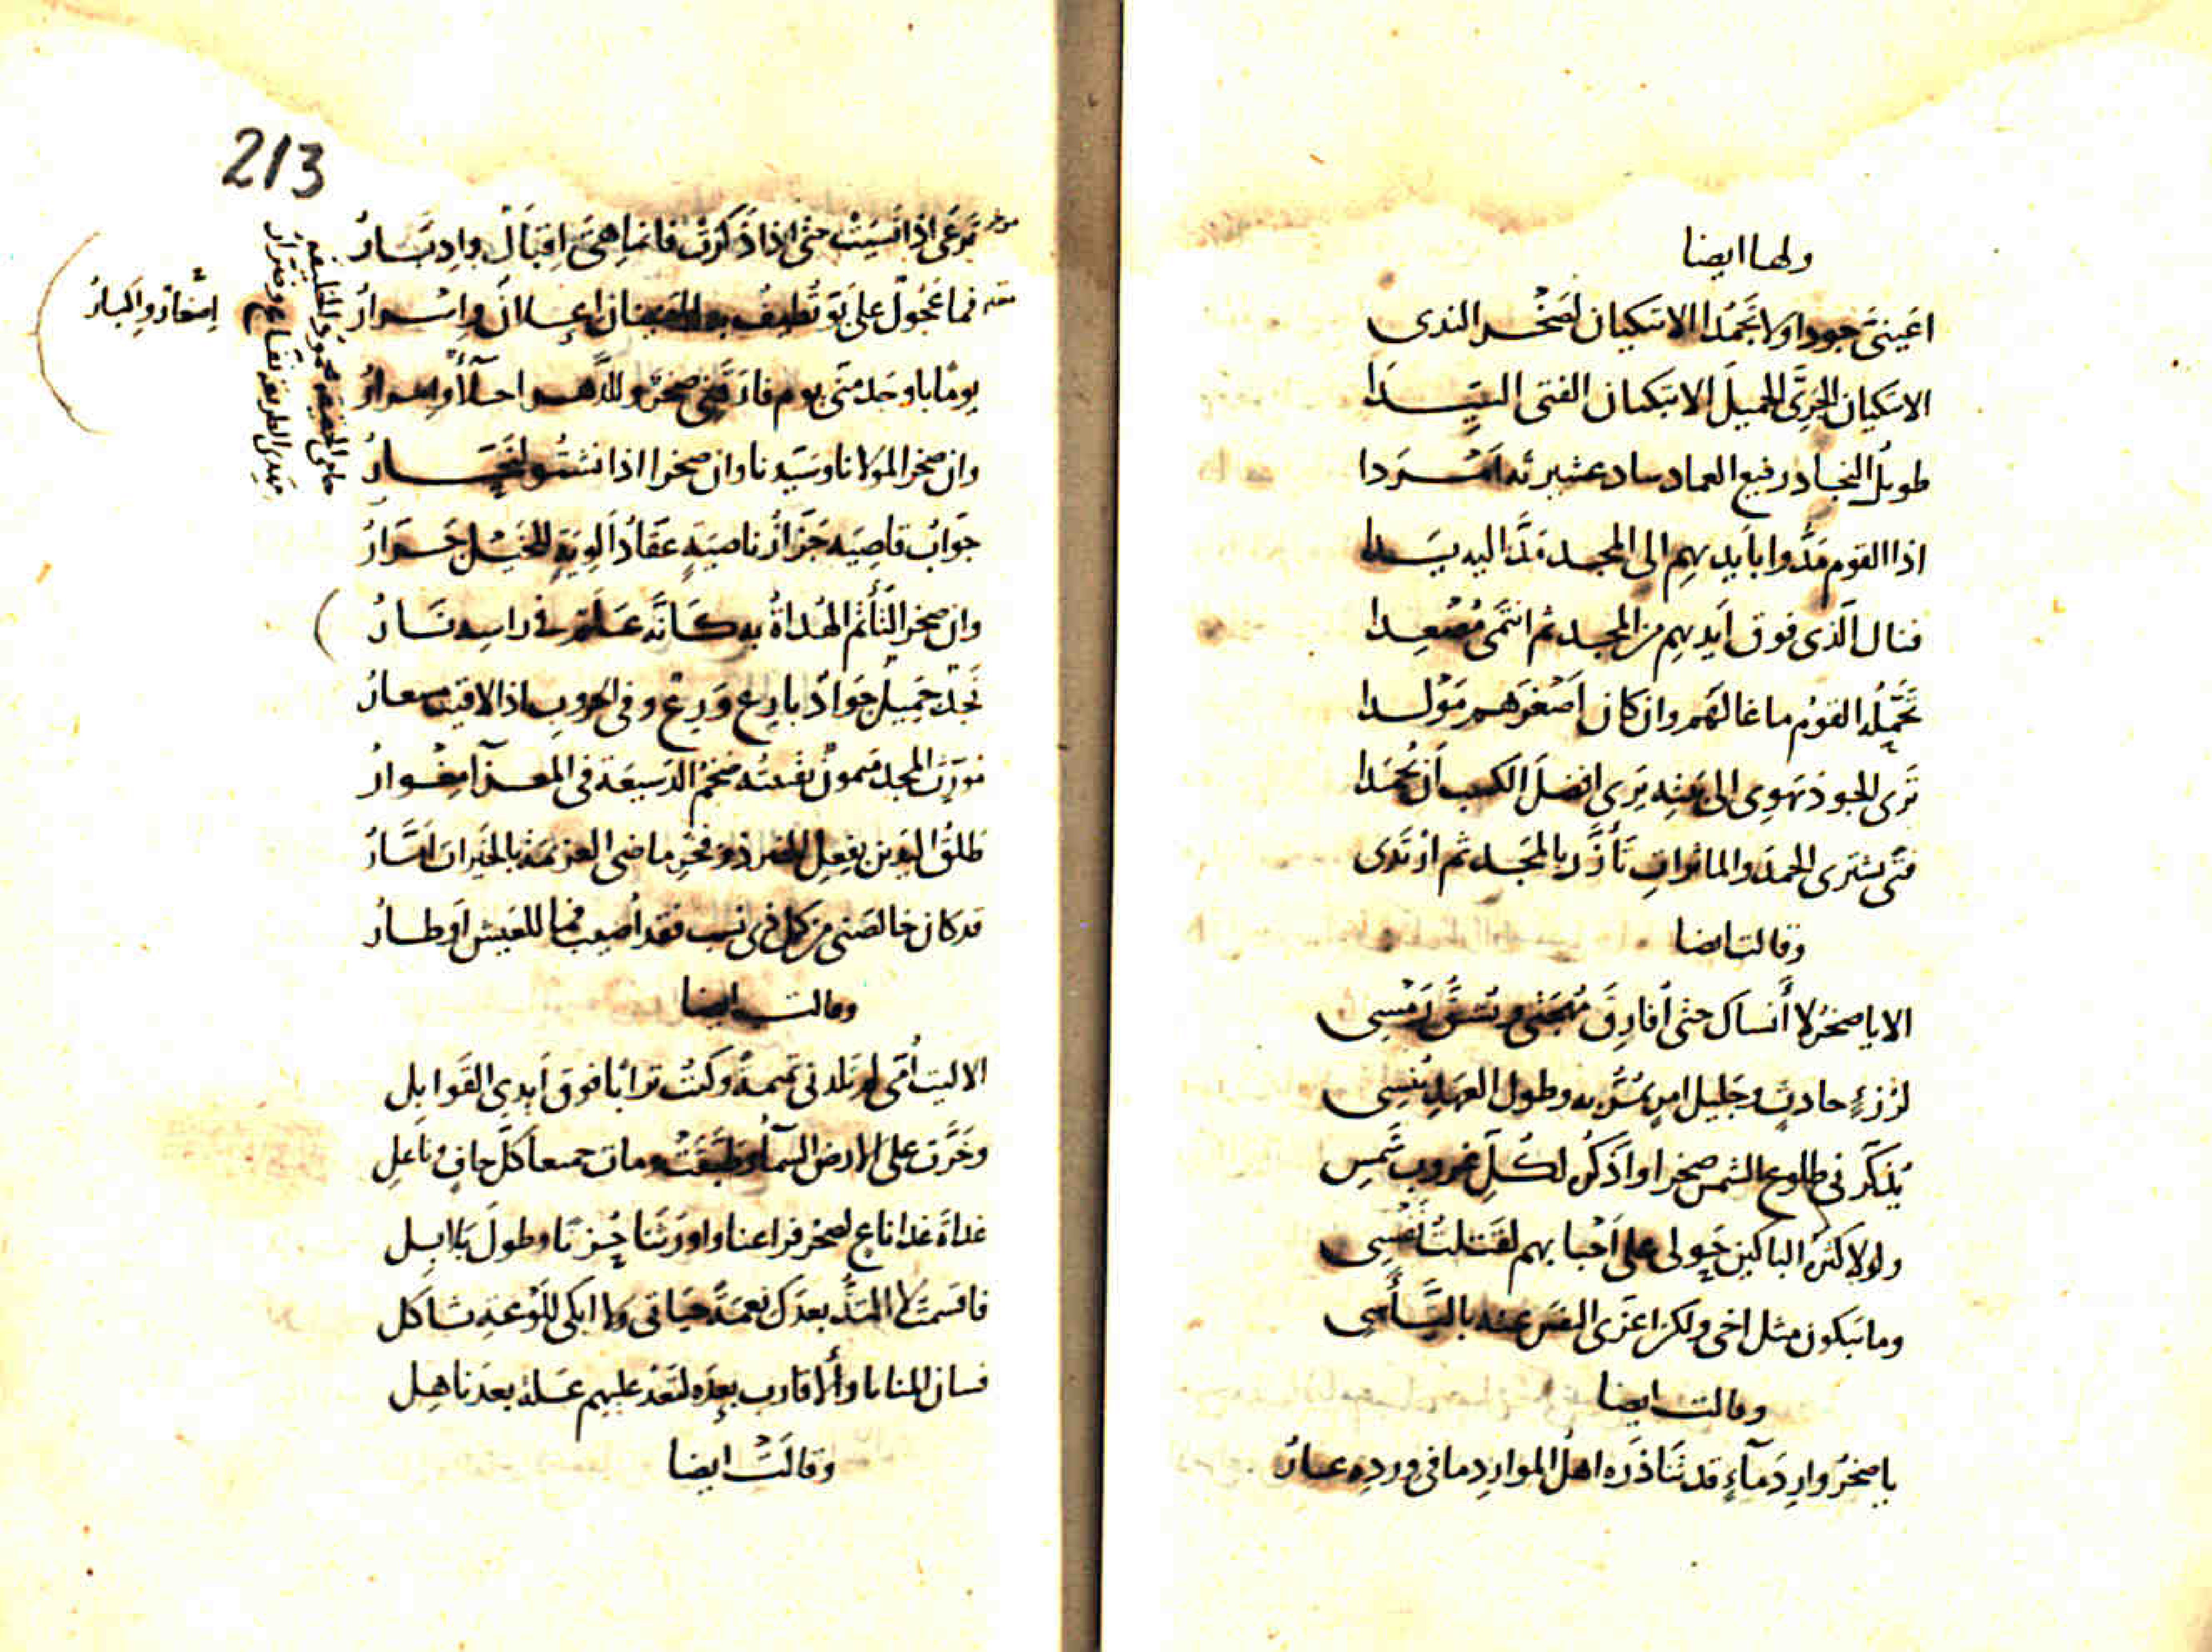 ولها ايضا
اعينيّ جودا ولا تجمُدا الا تبكيان لصخر الندى
الا تبكيان الجرىَّ الجميلَ الا تبكيان الفتى السيّدا
طويل النجاد رفيع العماد ساد عشيرته امردا
اذا القوم مدُّوا بايديهم الى المجد مدَّ اليه يدا
فنال الّذى فوق ايديهم من المجد ثم انتمى مُصْعِدا
تُحمّلُه القوم ما غالهم وان كان اصغرهم مولدا
ترى الجود يهوى الى بيته يرى افضل الكسب ان يُحمدا
فتى يشترى الحمد والماثرات تأزّر بالمجد ثم ارتدى
وقالت ايضا
الا يا صخرُ لا أنساك حتى أفارق مهجتى ويشقّ رمسى
لرزءٍ حادثٍ وجليل امرٍ يمُرّ به وطول العهد يُنسى
يُذكّرنى طلوع الشمس صخرا واذكره لكلّ غروب شمسِ
ولولا كثرة الباكين حولى على أحبابهم لقتلتُ نفسى
وما تبكون مثل اخى ولكن اعزى النفس عنه بالتّأسى
وقالت ايضا
يا صخرُ وارد مآءٍ قد تناذره اهل الموارد ما فى ورده عار
213
ترعى اذا نسيت حتى اذا ذكرت فانما هى اقبال وادبار
فما عجول على بوّ تُطيف به
اصغار واكبار
يوما باوجد منّى يوم فارقنى صخر وللدهر احلآء وامرار
وان صخرا لمولانا وسيدنا وان صخرا اذا نشتو لنحّار
جوّاب قاصيه جزّاز ناصيةٍ عقّاد ألويةٍ للخيل جرّار
وان صخرا لتأتم الهداة به كانّه علم فى راسه نار
جميل جواد بارع ورع وفى الحروب اذا لاقيت مسعار
مورّث المجد ميمون نقيبته ضخم الدسيعة فى العزآ مغوار
طلق اليدين بفعل الخير ذو فخر ماضى العزيمة بالخيرات امّار
قد كان خالصتى من كل ذى نسب فقد أصيب فما للعيش اوطار
وقالت ايضا
الا ليت أمّى لم تلدنى تميمة وكنت ترابا فوق ايدى القوابل
وخرّت على الارض السمآ وطبّقت ومات جميعا كلّ حافٍ وناعل
غداة غدا ناع لصخر فراعنا واورثنا حزنا وطول بلابل
فاقسمت لا بعدك نعمة حياتى ولا ابكى للوعة ثاكل
فسان المنايا والاقارب بعده لتعد عليهم علة بعد ناهل
وقالت ايضا